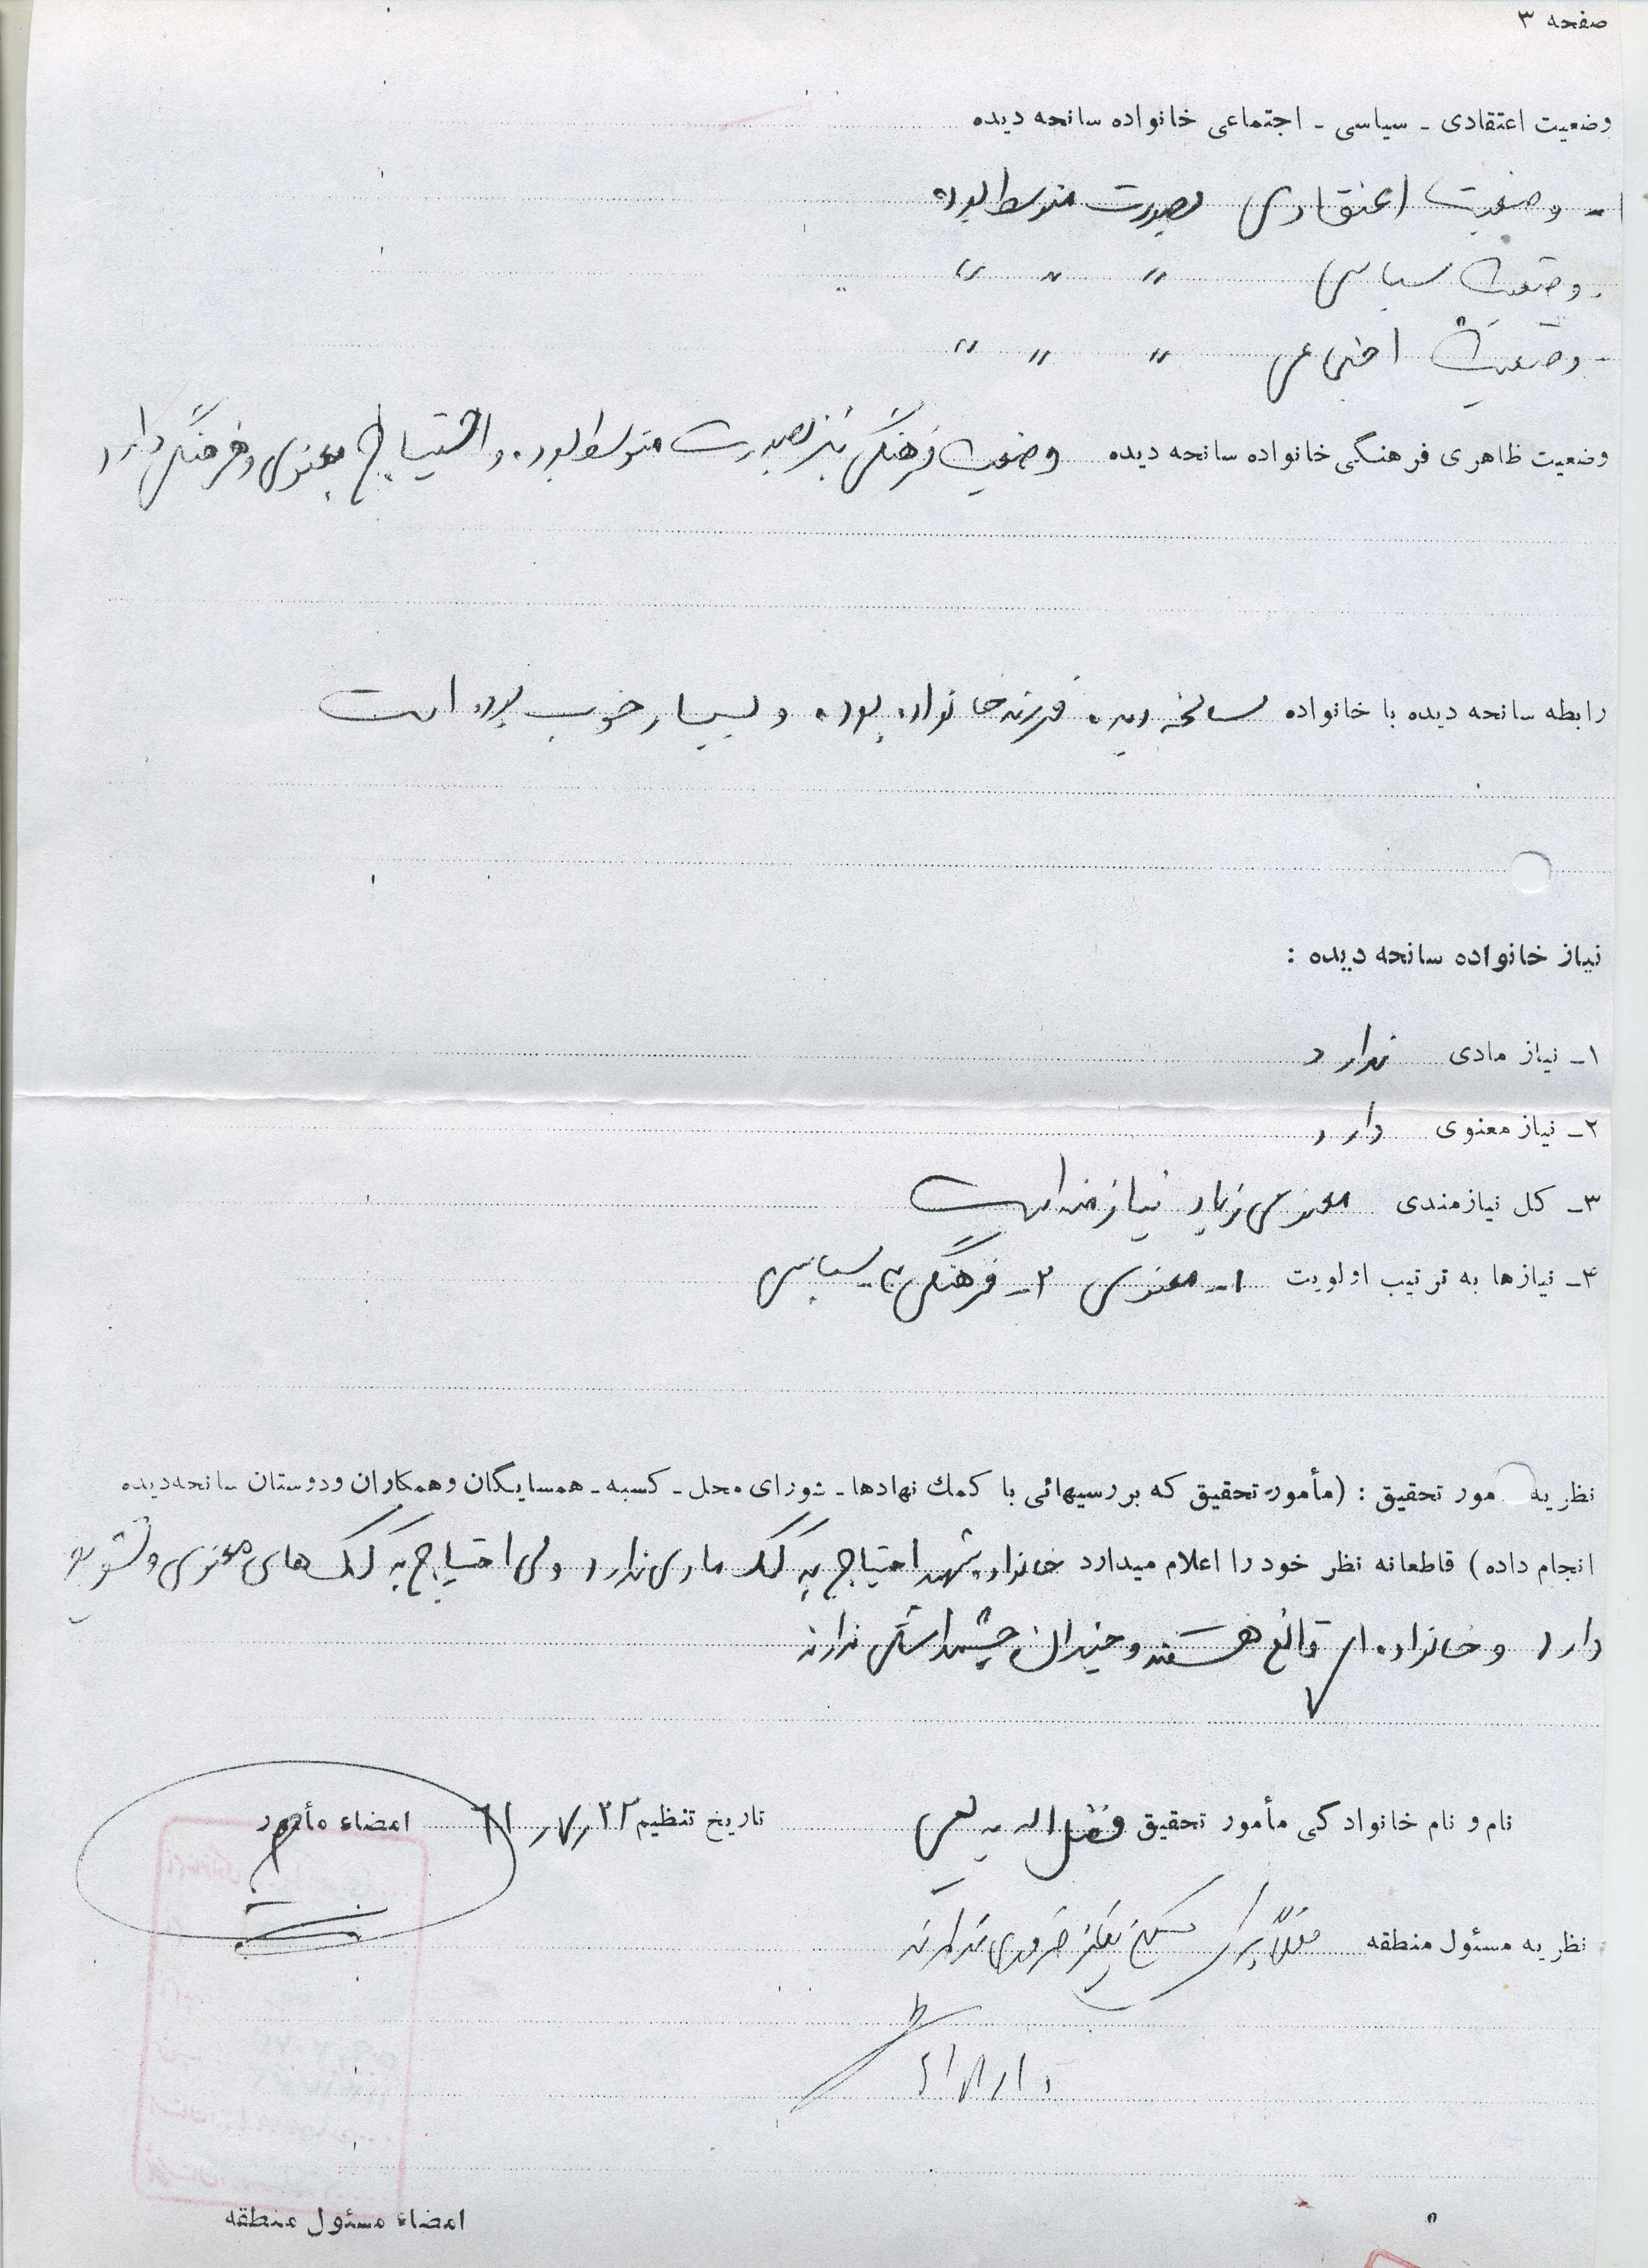 صفحه ۳
وضعیت اعتقادی - سیاسی - اجتماعی خانواده سانحه دیده
۱- وضعیت اعتقادی بصورت متوسط بوده
- وضعیت سیاسی " " "
- وضعیت اجتماعی " " "
وضعیت ظاهری فرهنگی خانواده سانحه دیده وضعیت فرهنگی نیز بصورت متوسط بوده و احتیاج معنوی و فرهنگی دارد
رابطه سانحه دیده با خانواده سانحه دیده فرزند خانواده بوده و بسیار خوب بوده است
نیاز خانواده سانحه دیده :
۱- نیاز مادی ندارد
۲- نیاز معنوی دارد
۳- کل نیازمندی معنوی زیاد نیازمند است
۴- نیازها به ترتیب اولویت ۱- معنوی ۲- فرهنگی ۳- سیاسی
نظریه مور تحقیق : (مأمور تحقیق که بررسیهائی با کمك نهادها - شورای محل - کسبه - همسایگان وهمکاران ودوستان سانحه‌دیده
انجام داده) قاطعانه نظر خود را اعلام میدارد خانواده شهید احتیاج به کمک مادی ندارد ولی احتیاج به کمک های معنوی و تشویق
دارد و خانواده ای قانع هستند و چندان چشمداشتی ندارند
نام و نام خانوادگی مأمور تحقیق فضل اله تاریخ تنظیم ۶۱/۷/۲۲ امضاء مأمور
نظریه مسئول منطقه فعلاً برای ضروری ندارند
امضاء مسئول منطقه